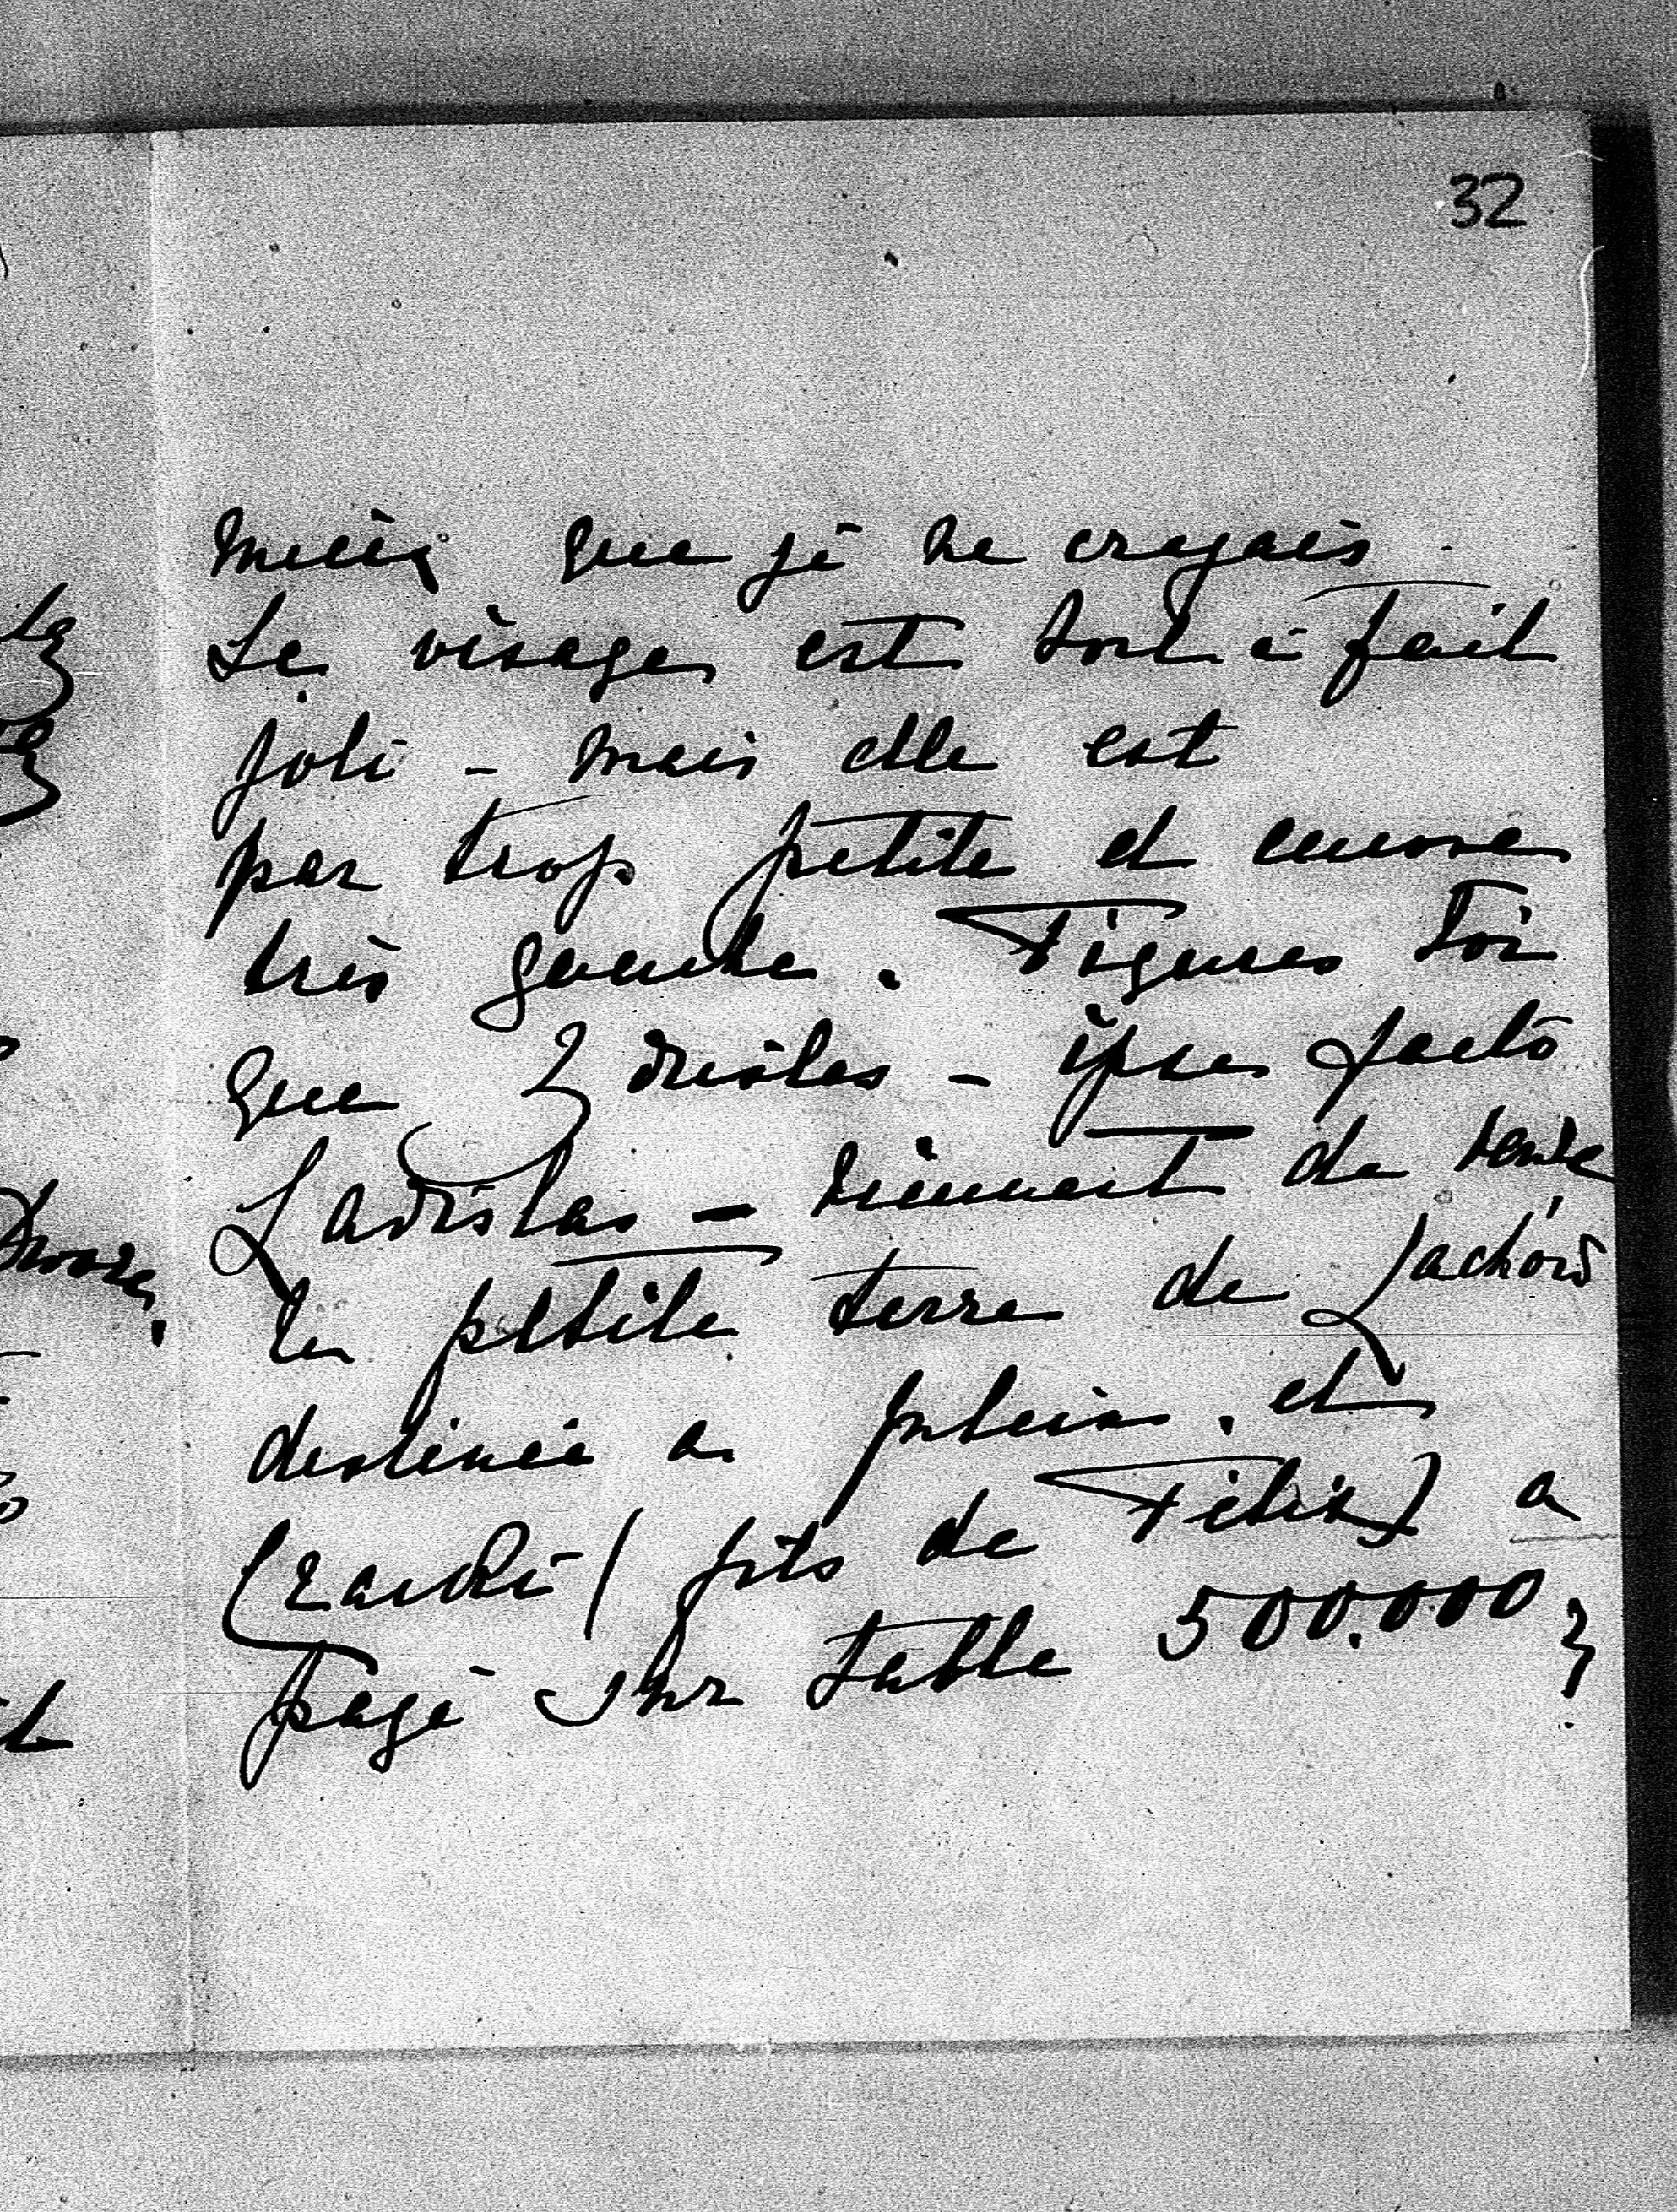 32
mieux que je ne croyais
Le visage est tout à fait
joli - mais elle est
par trop petite et encore
très gauche. Figures toi
que Zdzislas - ipse facto
Ladislas - viennent de vendre
la petite terre de Jachów
destinée a
fils de Felix) a
payé sur table 500.000